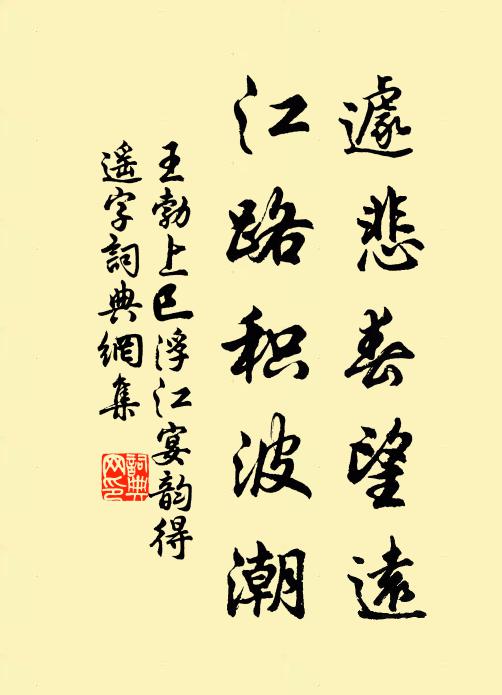 遽悲春望遠
江路积波潮
王勃上巳浮江宴韵得
遥字詞典網集
詞典
网印